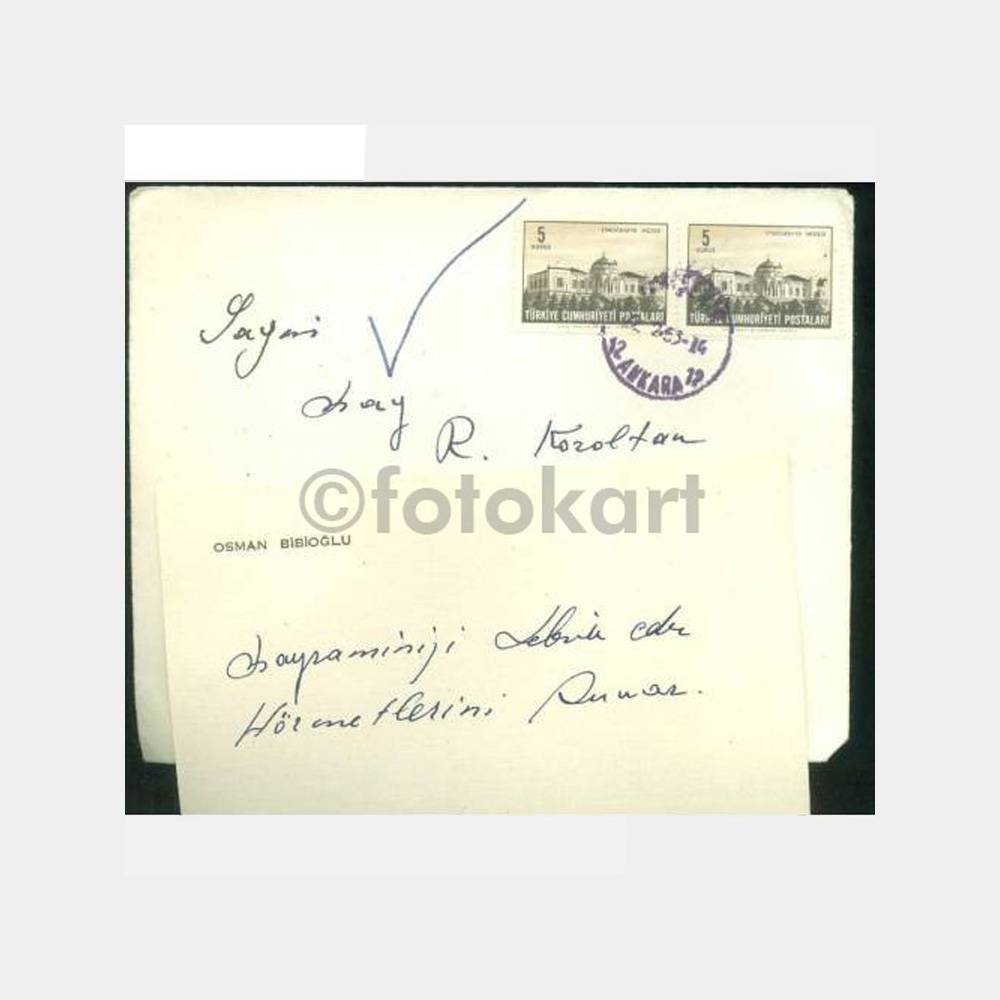 5 KURUŞ ETNOGRAFYA MÜZESİ
TÜRKİYE CUMHURİYETİ POSTALARI
5 KURUŞ ETNOGRAFYA MÜZESİ
TÜRKİYE CUMHURİYETİ POSTALARI
2-63-14
12 ANKARA 12
Sayın
Bay
R. Koroltan
©fotokart
OSMAN BİBİOĞLU
Bayraminizi Tebrik eder
Hörmetlerini Sunar.